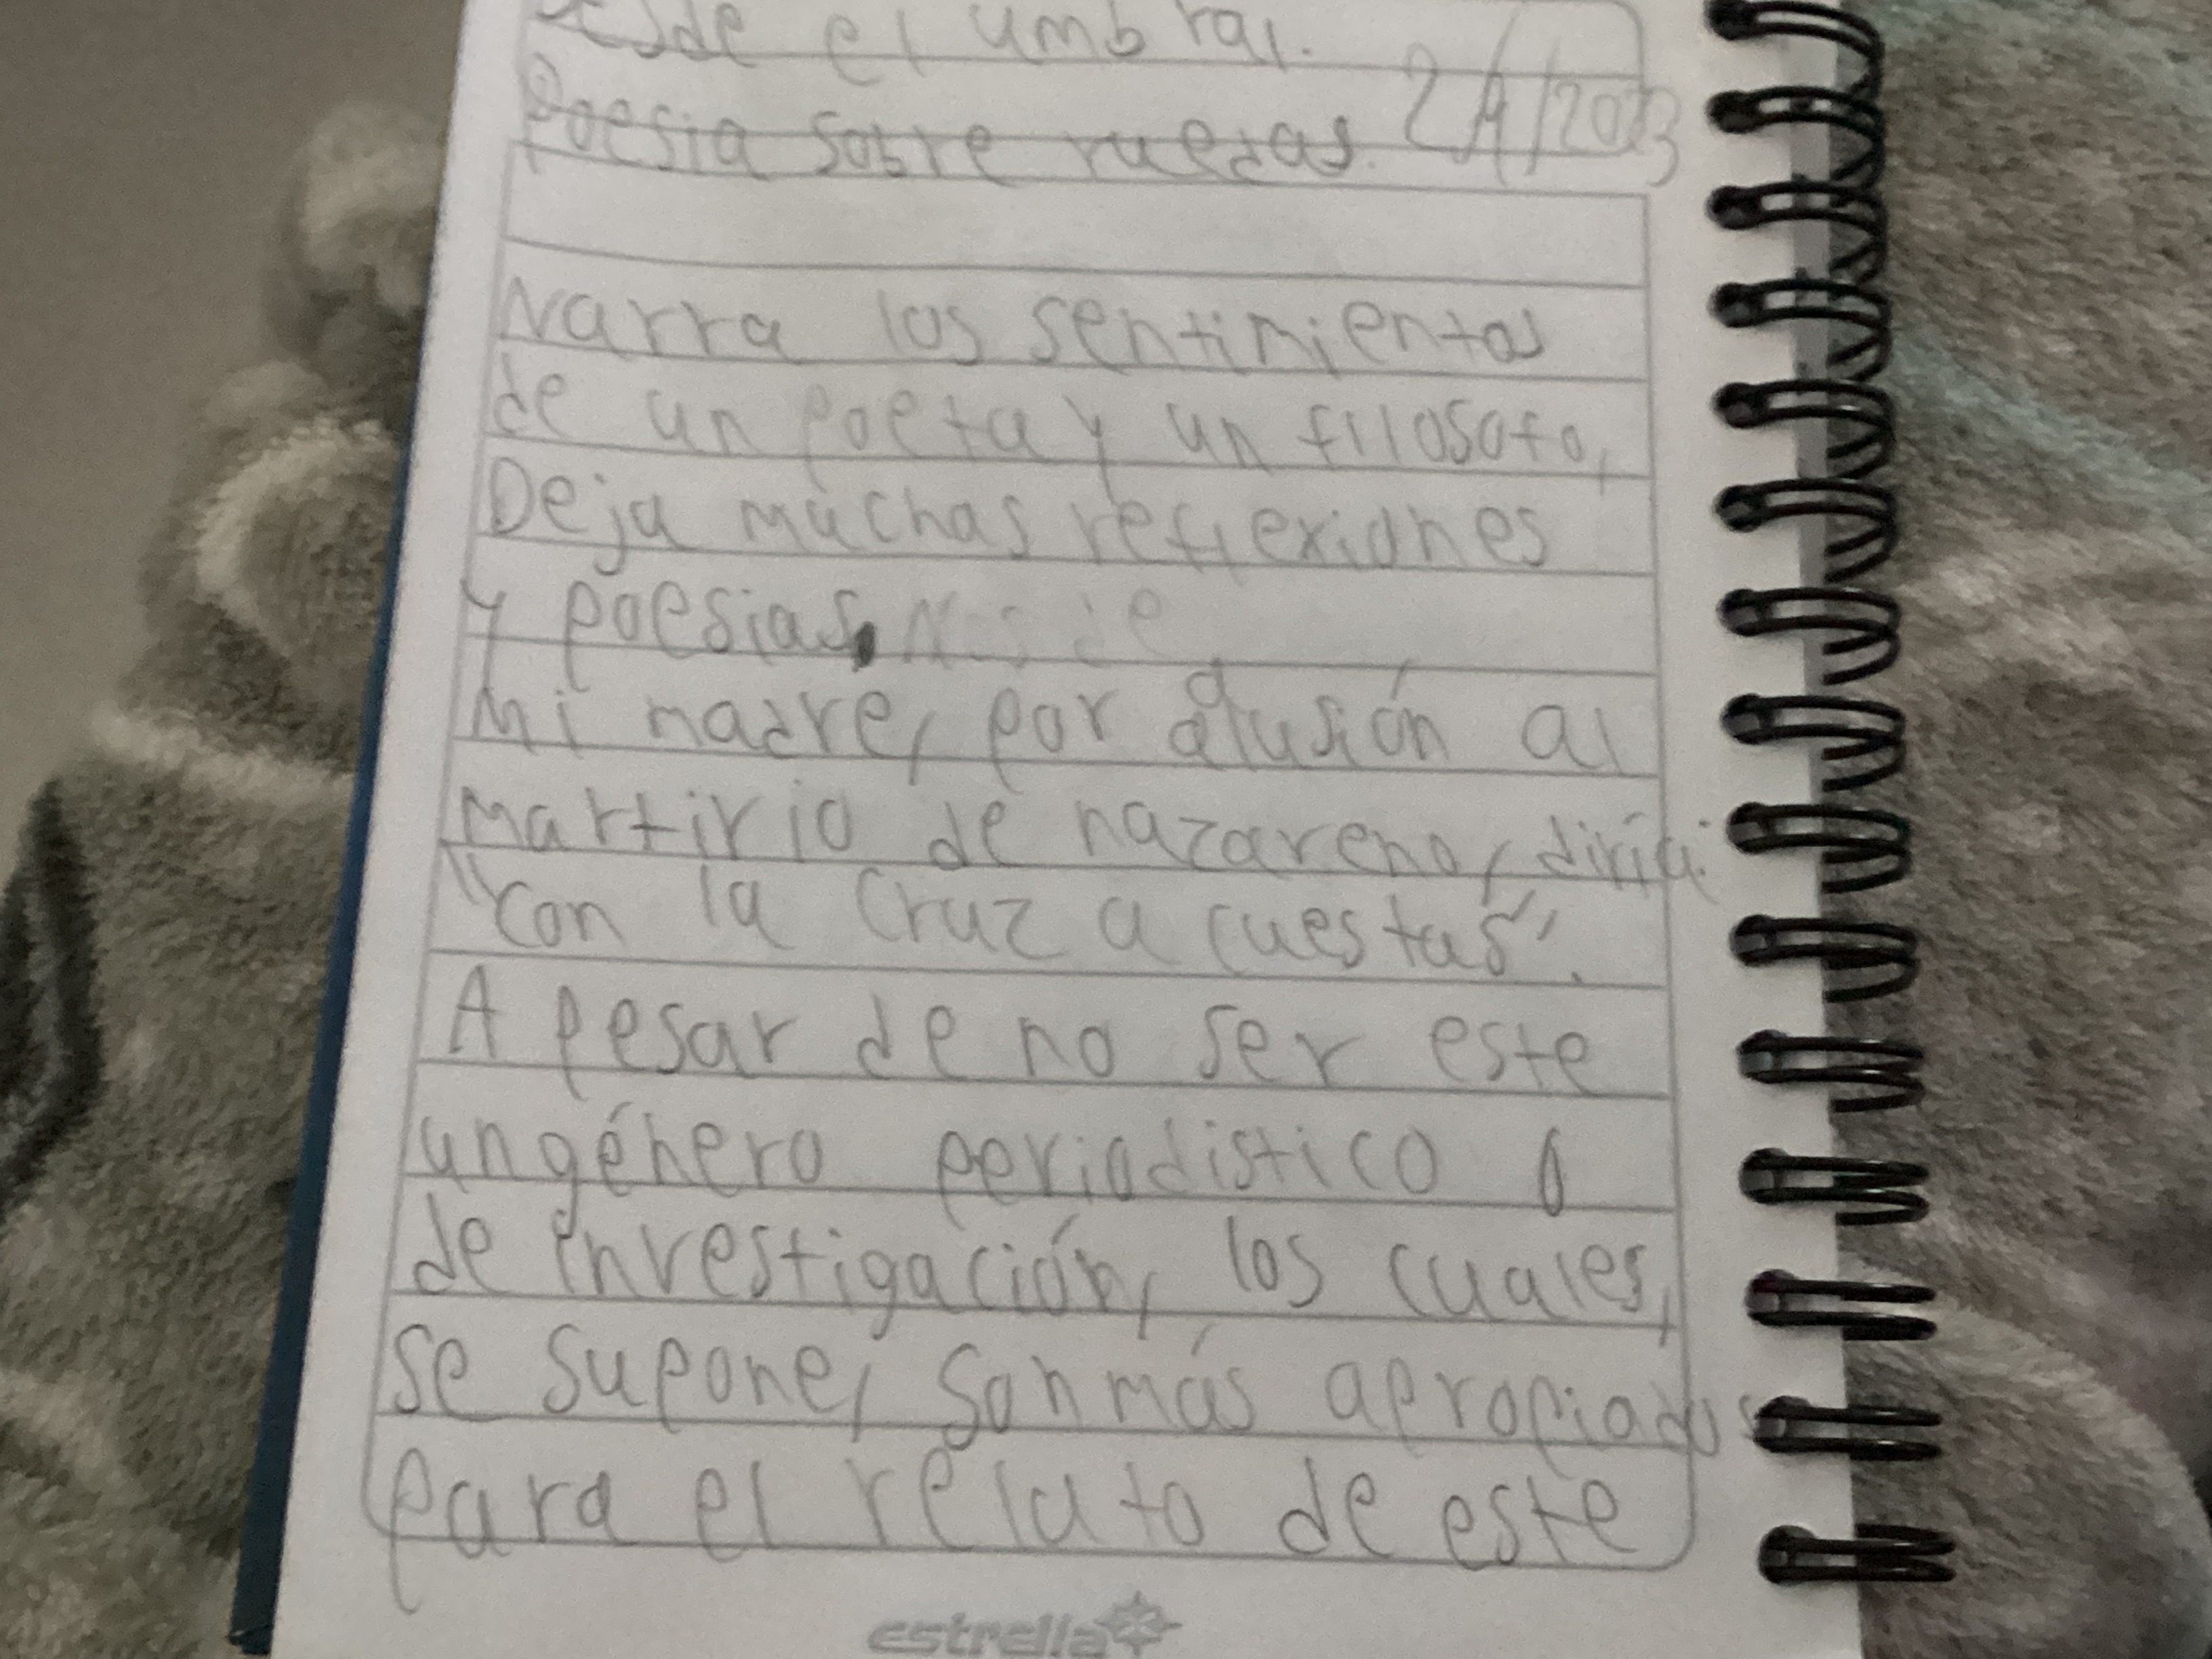 Desde el umbral.
Poesia sobre ruedas. 2/1/2023
Narra los sentimientos
de un poeta y un filosofo,
Deja muchas reflexiones
y poesias.
Mi madre, por alusión al
martirio de nazareno, diría:
"con la cruz a cuestas".
A pesar de no ser este
un género periodistico o
de investigación, los cuales,
se supone, son más apropiados
para el relato de este
estrella